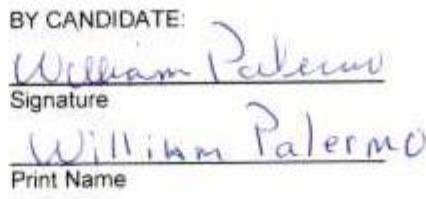 BY CANDIDATE:
William Palermo
Signature
William Palermo
Print Name